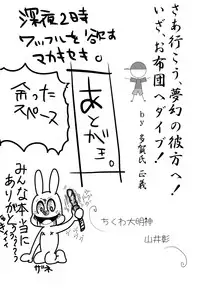 さあ行こう、夢幻の彼方へ!
いざ、お布団へダイブ!
by 多賀氏 正義
深夜2時
ワッフルを欲す
マカキセキ。
あとがき。
余った
スペース
ちくわ大明神
山井彰
みんな本当に